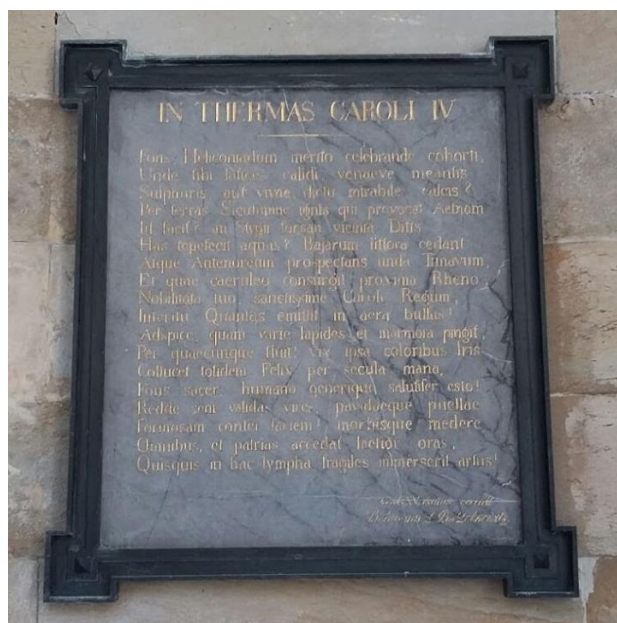 IN THERMAS CAROLI IV
Fons, Heliconiadum merito celebrande cohorti,
Unde tibi latices calidi venaeve meantis
Sulphuris aut vivae dictu mirabile calcis?
Per terras Siculumne ignis qui provocat Aetnam
Id facit? an Stygii forsan vicinia Ditis
Has tepefecit aquas? Bajarum littora cedant
Atque Antenoreum prospectans unda Timavum,
Et quae caeruleo consurgit proxima Rheno
Nobilitata tuo sanctissime Carole Regum,
Interitu Quantas emittit in aera bullas!
Adspice, quam varie lapides et marmora pingit,
Per quaecunque fluit! vix ipsa coloribus Iris
Collucet totidem Felix per secula mana,
Fons sacer, humano generique salutifer esto!
Redde seni validas vires, pavidaeque puellae
Formosam confer faciem! morbisque medere
Omnibus, et patrias accedat laetior oras,
Quisquis in hac lympha fragiles immerserit artus!